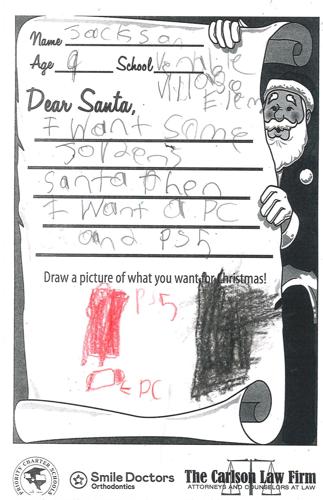 Name Jackson
Age 9 School Venable
Village
Elem
Dear Santa,
I want some
Jordens
Santa then
I want a PC
and PS5
Draw a picture of what you want for Christmas!
PS5
PC
PRIORITY CHARTER SCHOOLS
Smile Doctors
Orthodontics
The Carlson Law Firm
ATTORNEYS AND COUNSELORS AT LAW